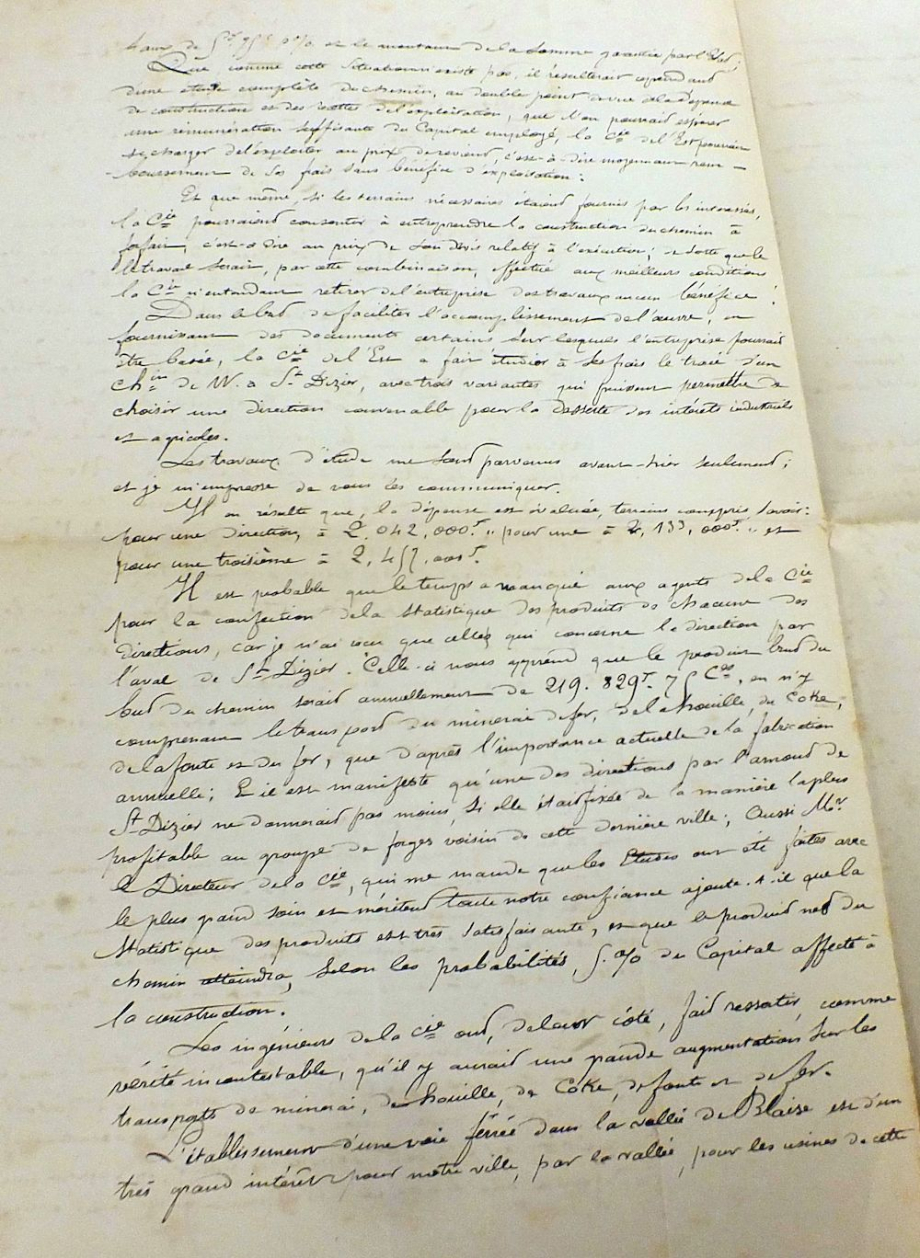 taux de 5f,75c p% est le montant de la somme garantie par l'Etat;
Que comme cette situation n'existe pas, il résulterait cependant
d'une étude complète du chemin, au double point de vue de la dépense
de construction et des recettes de l'exploitation, que l'on pourrait espérer
une rémunération suffisante du Capital employé, la Cie de l'Est pouvait
se charger de l'exploiter au prix de revient, c'est-à-dire moyennant rem-
-boursement de ses frais sans bénéfice d'exploitation:
Et que même, si les terrains nécessaires étaient fournis par les intéressés,
la Cie pourraient consentir à entreprendre la construction du chemin à
forfait, c'est-à-dire au prix de son devis relatif à l'exécution; de sorte que le
le travail serait, par cette combinaison, effectué aux meilleurs conditions
la Cie n'entendant retirer de l'entreprise des travaux aucun bénéfice.
Dans le but de faciliter l'accomplissement de l'œuvre, en
fournissant des documents certains sur lesquels l'entreprise pourrait
être basée, la Cie de l'Est a fait étudier à ses frais le tracé d'un
chin de W. à St Dizier, avec trois variantes qui puissent permettre de
choisir une direction convenable pour la desserte des intérêts industriels
et agricoles.
Les travaux d'étude me sont parvenus avant-hier seulement;
et je m'empresse de vous les communiquer.
Il en résulte que, la dépense est évaluée, terrains compris, savoir:
pour une direction, = 2,042,000f. " pour une = 2,133,000f. " et
pour une troisième = 2,457,000f.
Il est probable que le temps a manqué aux agents de la Cie
pour la confection de la statistique des produits de chacune des
directions, car je n'ai reçu que celles qui concerne la direction par
l'aval de St Dizier. Celle-ci nous apprend que le produit brut du
but du chemin serait annuellement de 219.829f.75 Ces, en n'y
comprenant le transport du minerai de fer, de la houille, du Coke,
de la fonte et du fer, que d'après l'importance actuelle de la fabrication
annuelle; Et il est manifeste qu'une des directions par l'amont de
St Dizier ne donnerait pas moins, si elle était fixée de la manière la plus
profitable au groupe de forges voisin de cette dernière ville; Aussi Mr
le Directeur de la Cie, qui me mande que les Etudes ont été faites avec
le plus grand soin et méritent toute notre confiance ajoute-t-il que la
Statistique des produits est très satisfaisante, et que le produit net du
chemin atteindra, selon les probabilités, 5.% du Capital affecté à
la construction.
Les ingénieurs de la Cie ont, de leur côté, fait ressortir, comme
vérité incontestable, qu'il y aurait une grande augmentation sur les
transports de minerai, de houille, de Coke, de fonte et de fer.
L'établissement d'une voie ferrée dans la vallée de Blaise est d'un
très grand intérêt pour notre ville, par la vallée, pour les usines de cette